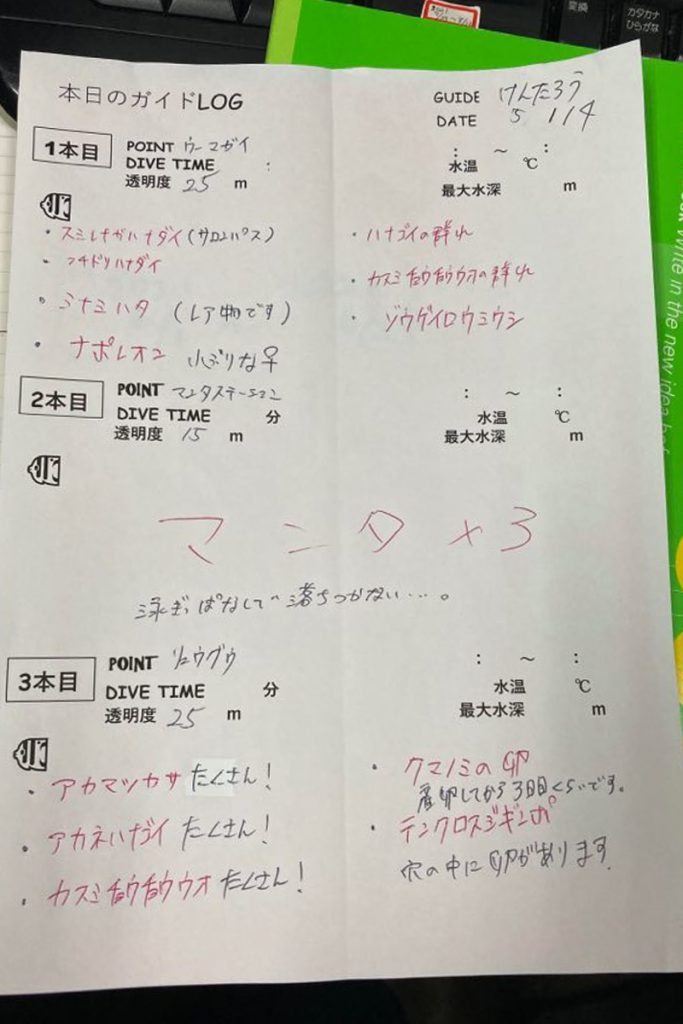 変換
カタカナ
ひらがな
本日のガイドLOG
GUIDE けんたろう
DATE 5 1/4
1本目
POINT ウーマガイ
DIVE TIME :
透明度 25 m
: ~ :
水温 ℃
最大水深 m
・スミレナガハナダイ(サロンパス)
・フチドリハナダイ
・ミナミハタ (レア物です)
・ナポレオン 小ぶりな♀
・ハナゴイの群れ
・カスミチョウチョウウオの群れ
・ゾウゲイロウミウシ
2本目
POINT マンタステーション
DIVE TIME 分
透明度 15 m
: ~ :
水温 ℃
最大水深 m
マンタ×3
泳ぎっぱなしで落ちつかない・・・。
3本目
POINT リュウグウ
DIVE TIME 分
透明度 25 m
: ~ :
水温 ℃
最大水深 m
・アカマツカサ たくさん!
・アカネハナゴイ たくさん!
・カスミチョウチョウウオ たくさん!
・クマノミの卵
産卵してから3日目くらいです。
・テンクロスジギンポ
穴の中に卵があります
Write in the new idea